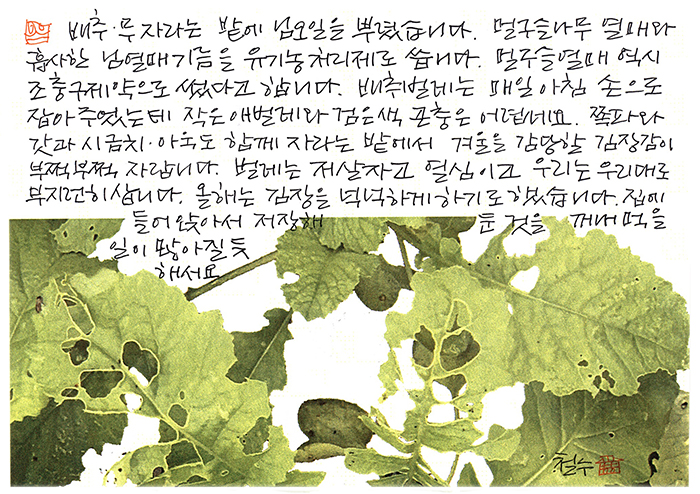 배추·무 자라는 밭에 님오일을 뿌렸습니다. 멀구슬나무 열매와
흡사한 님열매기름을 유기농처리제로 씁니다. 멀구슬열매 역시
조충구제약으로 썼다고 합니다. 배추벌레는 매일 아침 손으로
잡아 주었는데 작은 애벌레와 검은색 곤충은 어렵네요. 쪽파와
갓과 시금치·아욱도 함께 자라는 밭에서 겨울을 감당할 김장감이
부쩍부쩍 자랍니다. 벌레는 저살자고 열심이고 우리는 우리대로
부지런히 삽니다. 올해는 김장을 넉넉하게 하기로 했습니다. 집에
들어 앉아서 저장해 둔 것을 꺼내 먹을
일이 많아질 듯
해서요
철수